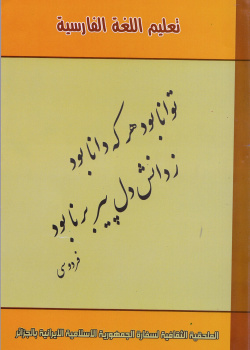 تعليم اللغة الفارسية
توانا بود هر که دانا بود
ز دانش دل پیر برنا بود
فردوسی
الملحقية الثقافية لسفارة الجمهورية الاسلامية الايرانية بالجزائر